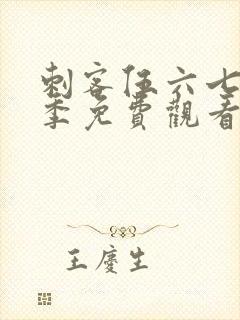 刺客伍六七
季免費觀看
王慶生